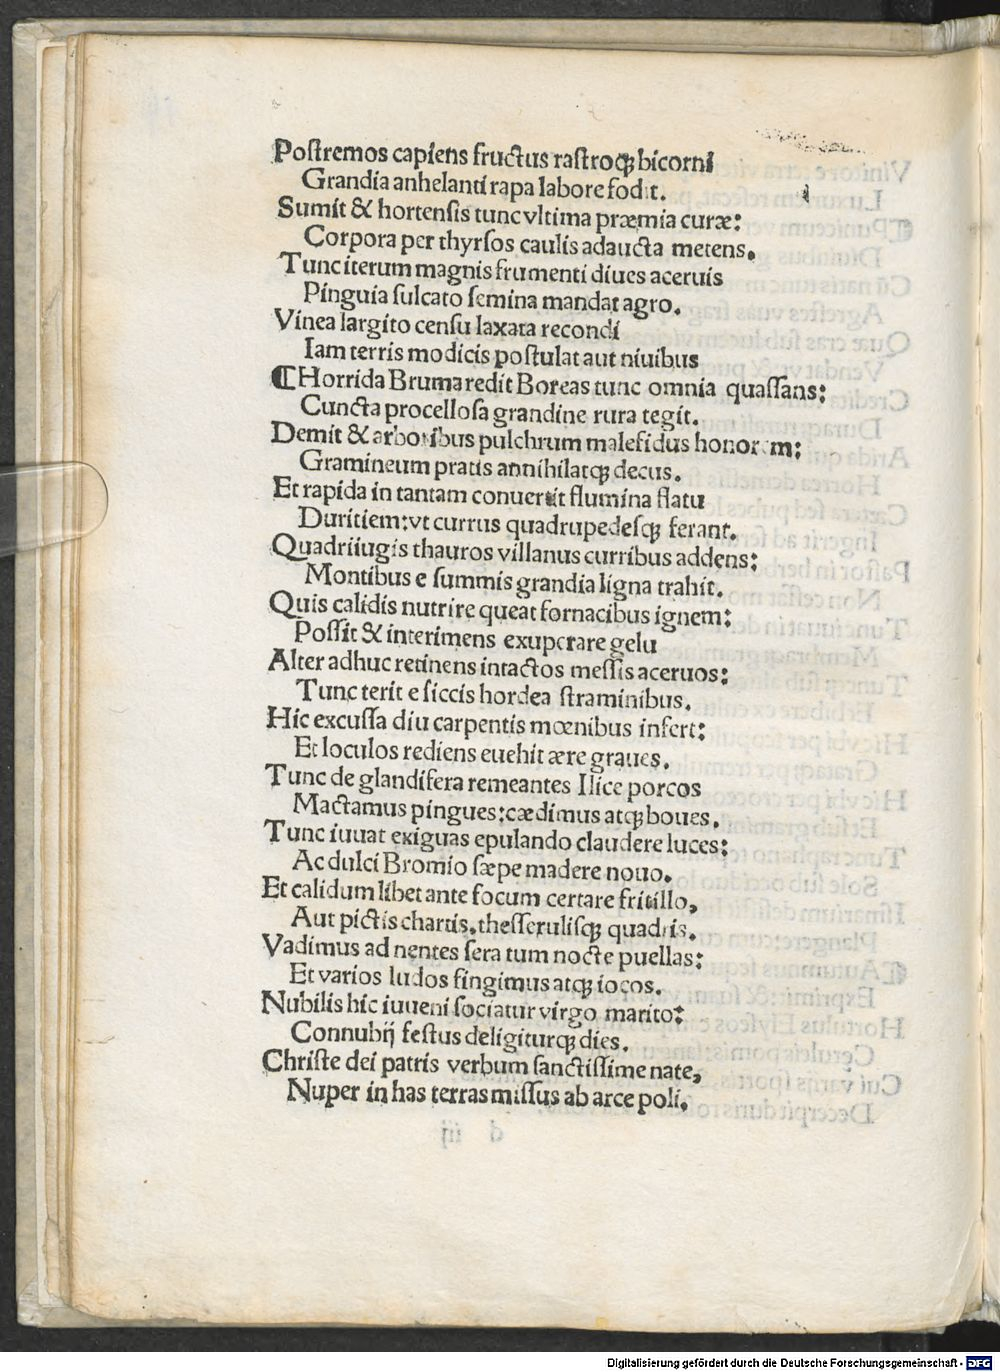 Poſtremos capiens fructus raſtroqꝫ bicorni
Grandia anhelanti rapa labore fodit.
Sumit & hortenſis tunc vltima præmia curæ:
Corpora per thyrſos caulis adaucta metens.
Tunc iterum magnis frumenti diues aceruis
Pinguia ſulcato ſemina mandat agro.
Vinea largito cenſu laxata recondi
Iam terris modicis poſtulat aut niuibus
¶ Horrida Bruma redit Boreas tunc omnia quaſſans:
Cuncta procelloſa grandine rura tegit.
Demit & arboribus pulchrum malefidus honorem:
Gramineum pratis annihilatqꝫ decus.
Et rapida in tantam conuertit flumina flatu
Duritiem: vt currus quadrupedeſqꝫ ferant.
Quadriiugis thauros villanus curribus addens:
Montibus e ſummis grandia ligna trahit.
Quis calidis nutrire queat fornacibus ignem:
Poſſit & interimens exuperare gelu
Alter adhuc retinens intactos meſſis aceruos:
Tunc terit e ſiccis hordea ſtraminibus.
Hic excuſſa diu carpentis mœnibus infert:
Et loculos rediens euehit ære graues.
Tunc de glandifera remeantes Ilice porcos
Mactamus pingues: cædimus atqꝫ boues.
Tunc iuuat exiguas epulando claudere luces:
Ac dulci Bromio ſæpe madere nouo.
Et calidum libet ante focum certare fritillo,
Aut pictis chartis, theſſeruliſqꝫ quadris.
Vadimus ad nentes ſera tum nocte puellas:
Et varios ludos fingimus atqꝫ iocos.
Nubilis hic iuueni ſociatur virgo marito:
Connubij feſtus deligiturqꝫ dies.
Chriſte dei patris verbum ſanctiſſime nate,
Nuper in has terras miſſus ab arce poli,
d iij
Digitalisierung gefördert durch die Deutsche Forschungsgemeinschaft - DFG